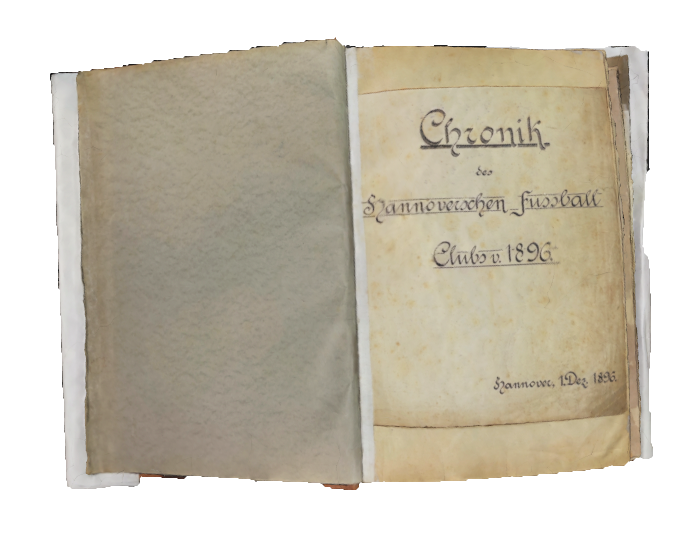 Chronik
des
Hannoverschen Fussball
Clubs v. 1896.
Hannover, 1. Dez. 1896.